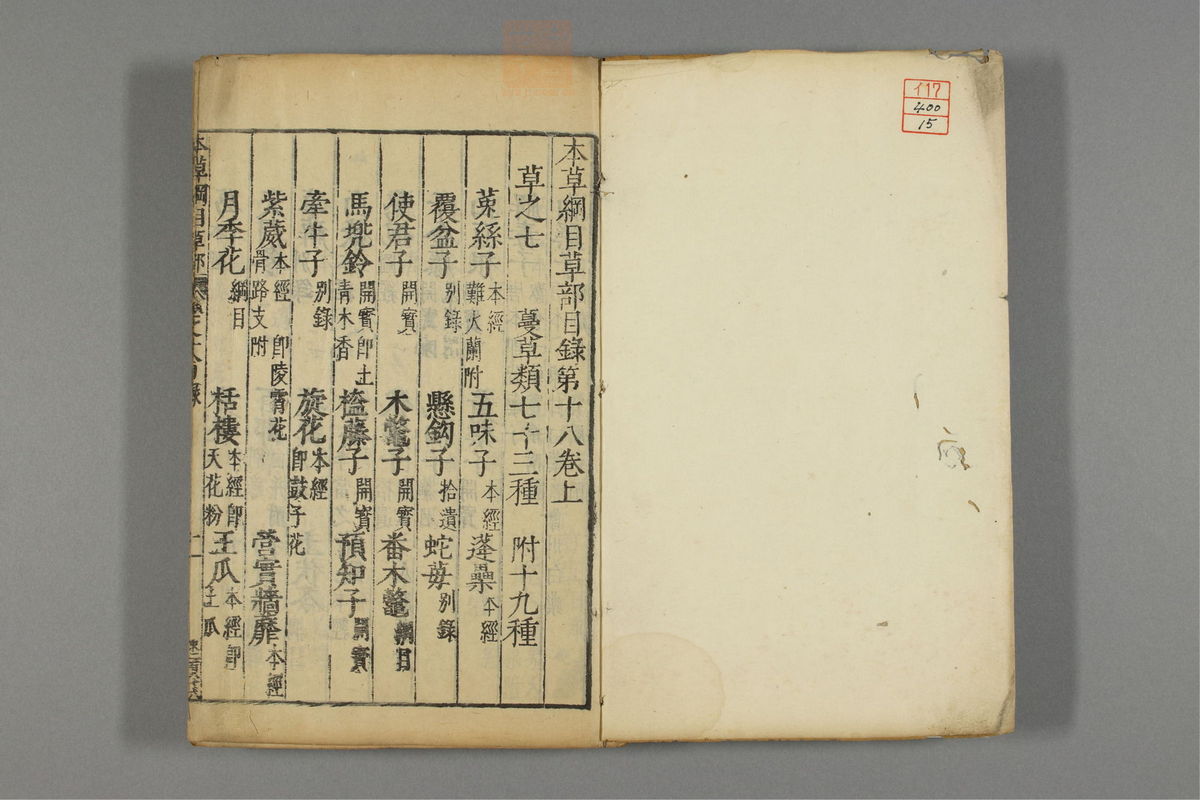 イ17
400
15
本草綱目草部目錄第十八卷上
草之七　蔓草類七十三種　附十九種
菟絲子 本經 難火蘭附　五味子 本經　蓬蘽 本經
覆盆子 別錄　懸鈎子 拾遺　蛇莓 別錄
使君子 開寶　木鼈子 開寶　番木鼈 綱目
馬兜鈴 開寶 卽土青木香　榼藤子 開寶　預知子 開寶
牽牛子 別錄　旋花 本經 卽鼓子花
紫葳 本經 卽陵霄花 骨路支附　營實牆蘼 本經
月季花 綱目　栝樓 本經 卽天花粉　王瓜 本經 卽土瓜
本草綱目草部